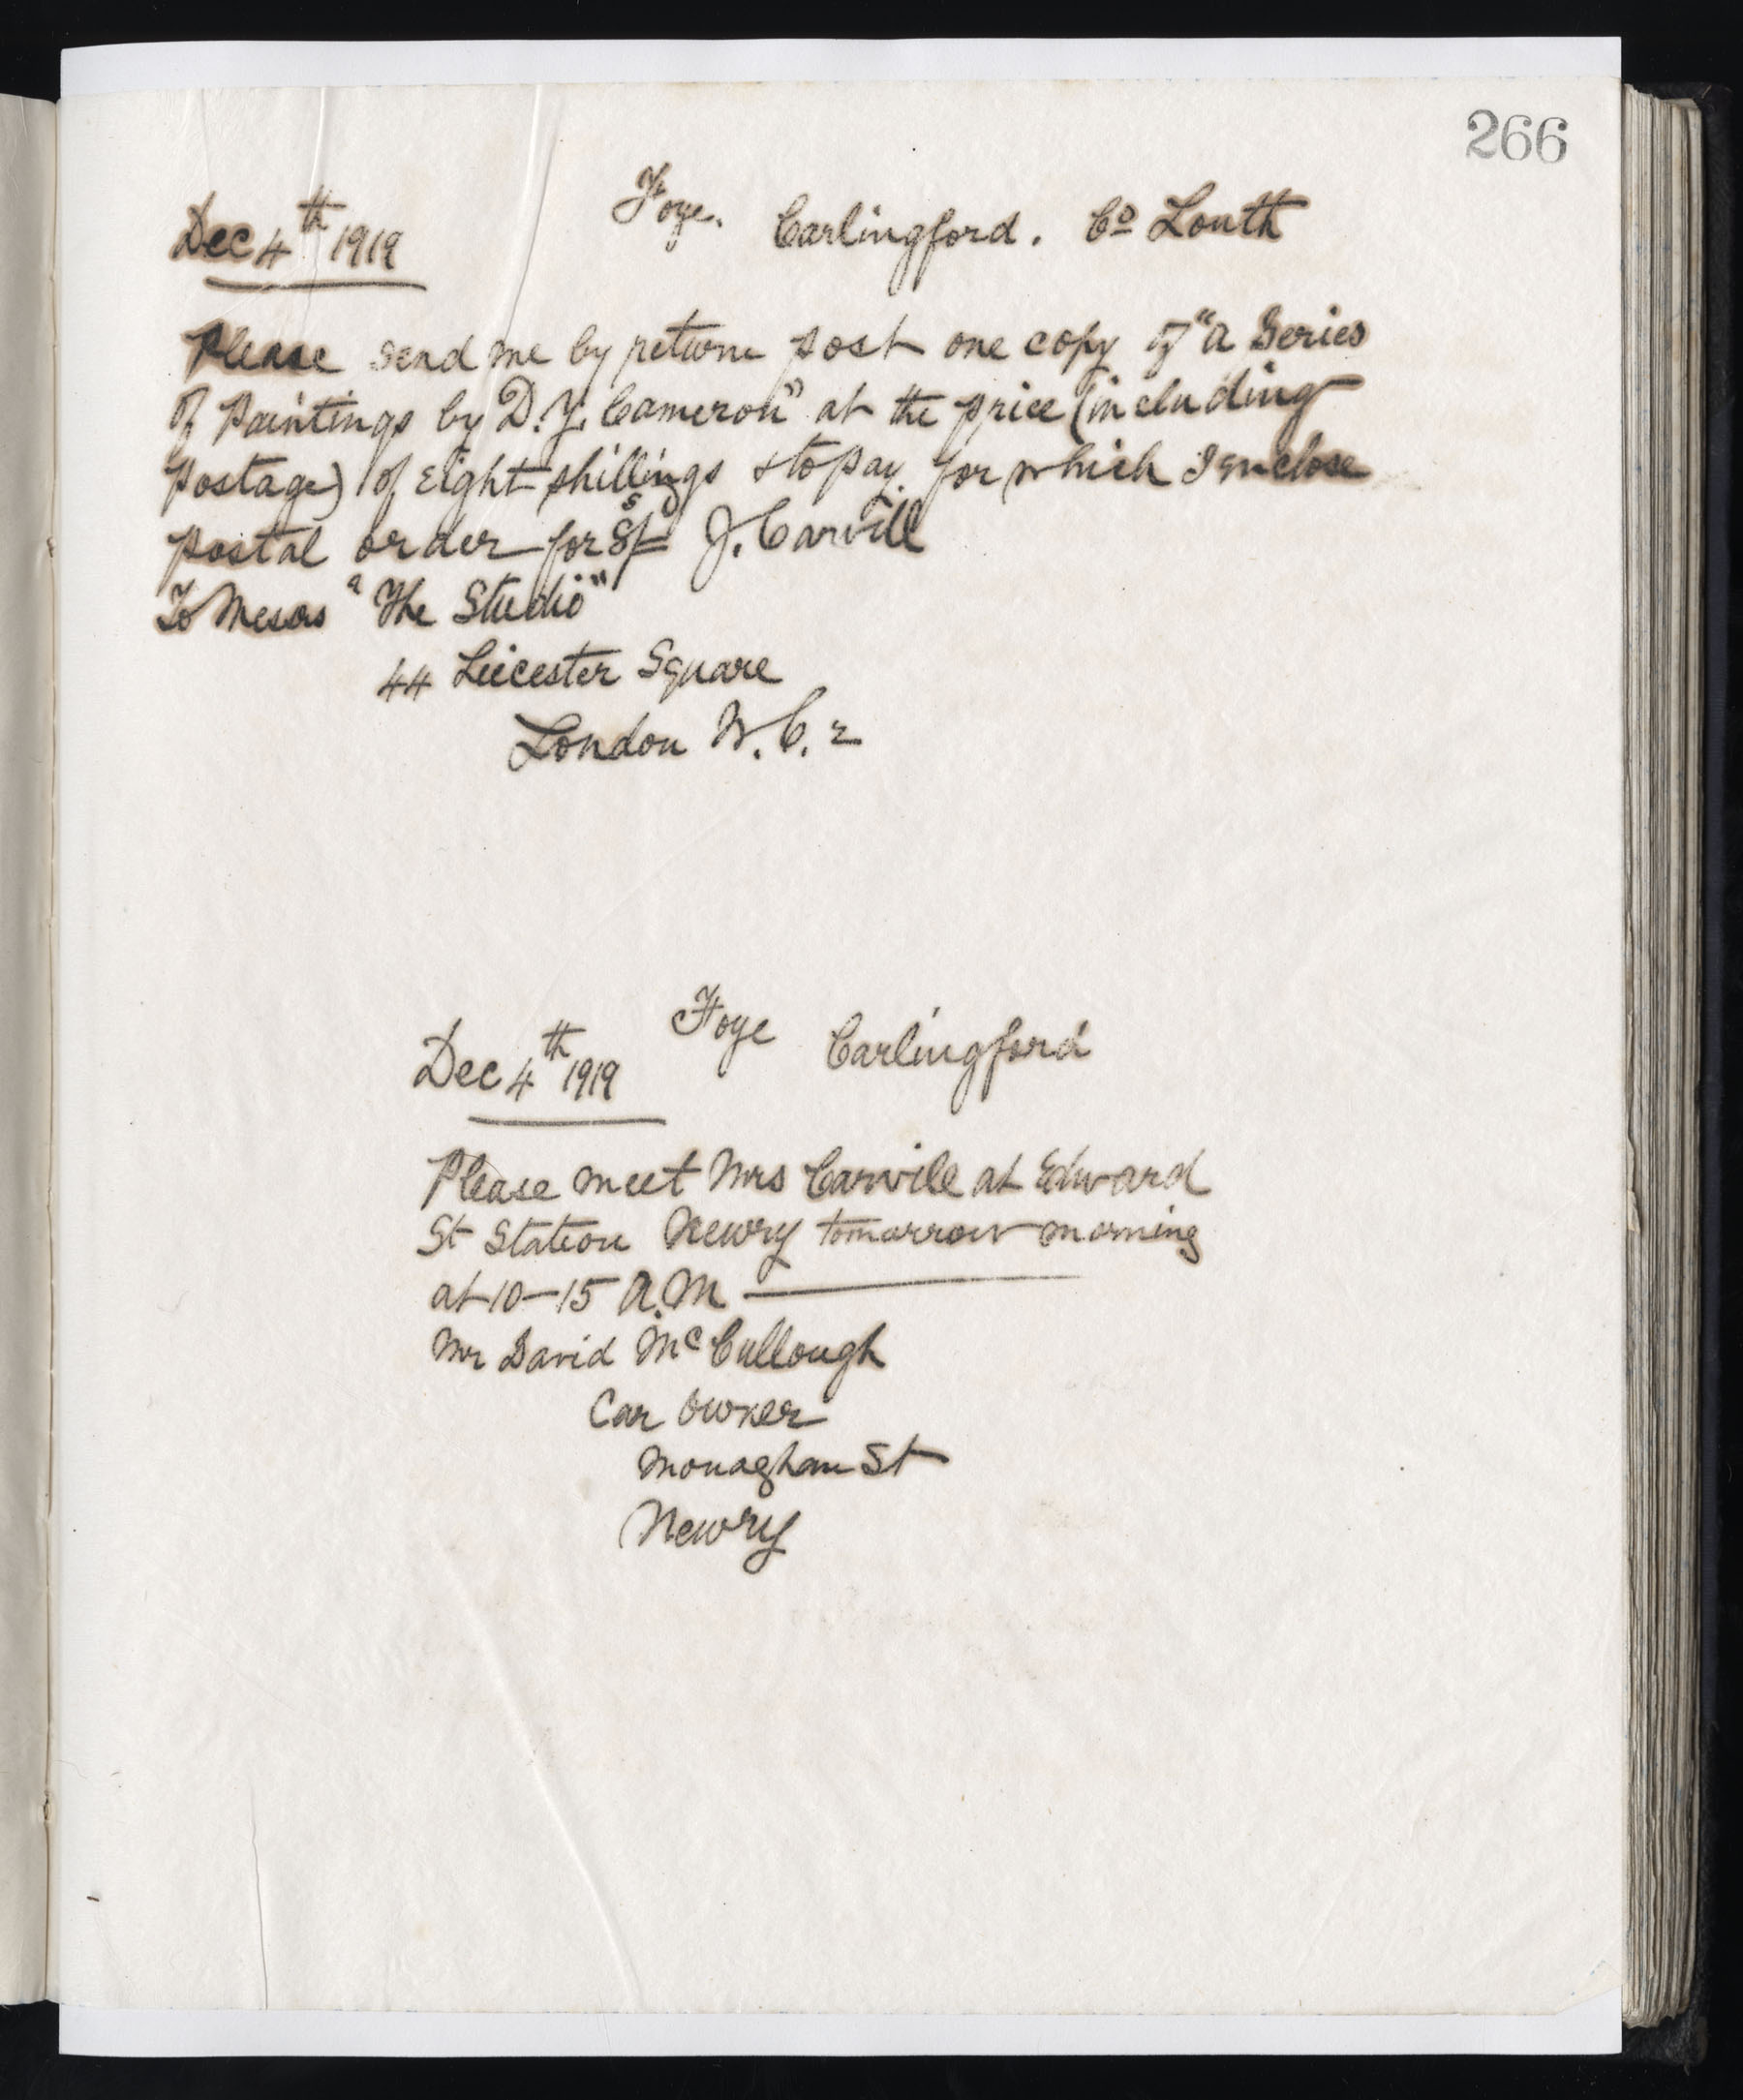 266
Foye. Carlingford. Co Louth
Dec 4th 1919
Please send me by return post one copy of "A Series
of Paintings by D. Y. Cameron" at the price (including
postage) of eight shillings & to pay for which I enclose
postal order for 8s/= J. Carvill
To Messrs "The Studio"
44 Leicester Square
London W.C. 2
Foye Carlingford
Dec 4th 1919
Please meet Mrs Carvill at Edward
St Station Newry tomorrow morning
at 10-15 A.M
Mr David McCullough
Car Owner
Monaghan St
Newry